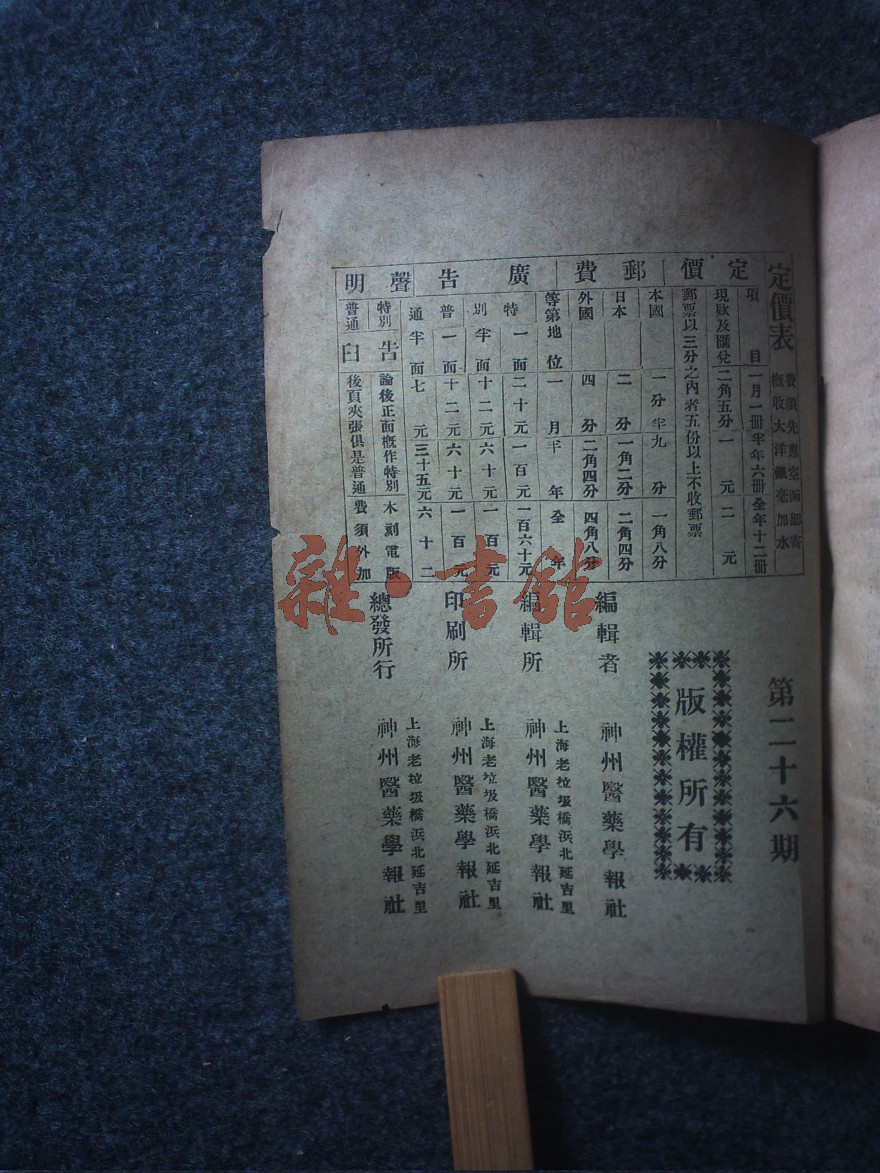 定價表
費須先惠空函恕寄
概收大洋銀毫加水
定價
項目 一月一冊 半年六冊 全年十二冊
現欵及匯兌 二角五分 一元 二元
郵票以三分之內者五份以上不收郵票
郵費
本國 一分半 九分 一角八分
日本 二分 一角二分 二角四分
外國 四分 二角四分 四角八分
廣告
等第 地位 一月 半年 全年
特別 一面 二十元 一百元 一百六十元
半面 十二元 六十元 一百元
普通 一面 十二元 六十元 一百元
半面 七元 三十五元 六十二
聲明
特別 告白 論後正面概作特別 木刻電版
普通 後頁夾張俱是普通 費須外加
第二十六期
版權所有
編輯者 神州醫藥學報社
上海老垃圾橋浜北延吉里
編輯所 神州醫藥學報社
上海老垃圾橋浜北延吉里
印刷所 神州醫藥學報社
上海老垃圾橋浜北延吉里
總發所行 神州醫藥學報社
雜·書館